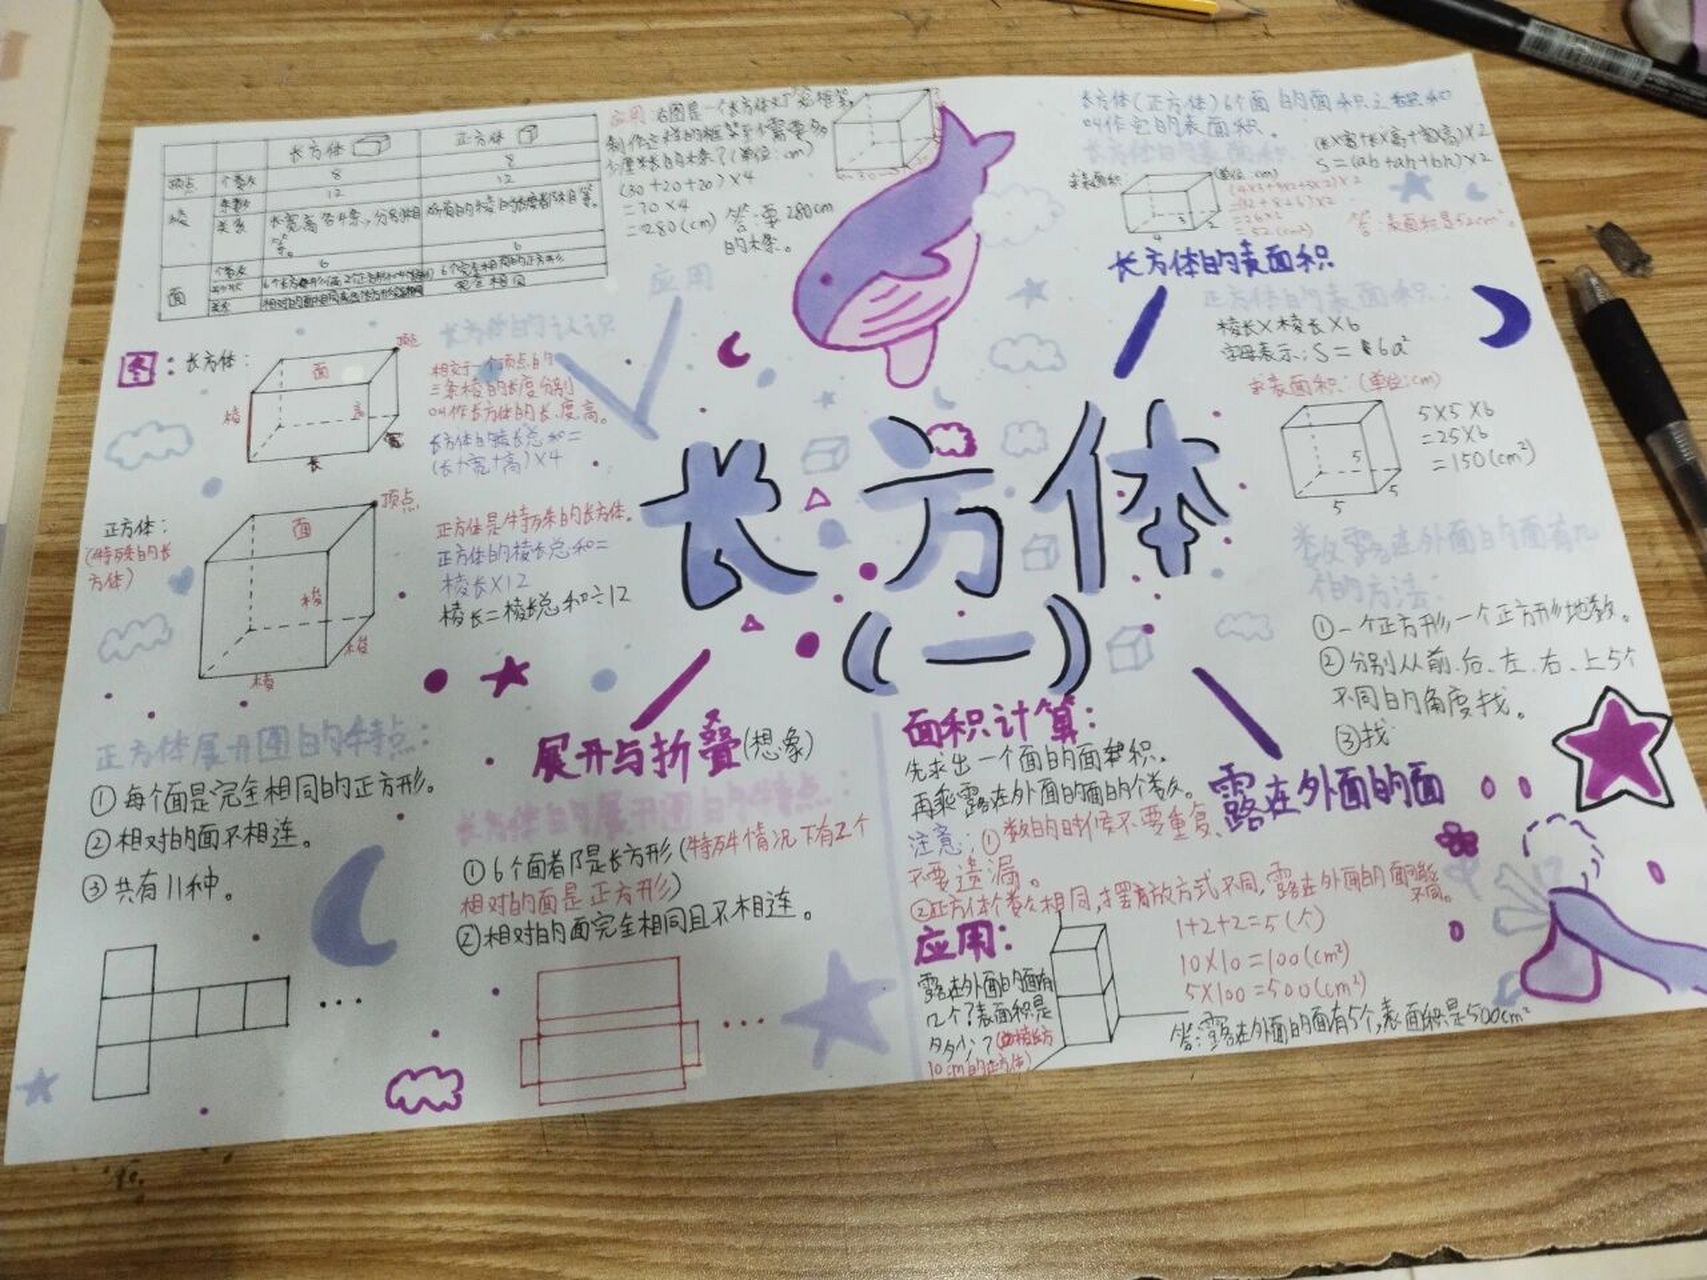 长方体
正方体
顶点
个数
8
8
棱
条数
12
12
关系
长宽高各4条,分别相等。
所有的棱的长度都相等。
面
个数
6
6
形状
6个完全相同的正方形
关系
完全相同
应用:右图是一个长方体灯笼框架,
制作这样的框架至少需要多
少厘米长的木条?(单位:cm)
(30+20+20)×4
=70×4
=280(cm) 答:要280cm
的木条。
应用
长方体的认识
图:长方体:
顶点
面
棱
高
宽
长
相交于一个顶点的
三条棱的长度分别
叫作长方体的长、宽、高。
长方体的棱长总和=
(长+宽+高)×4
正方体:
(特殊的长
方体)
顶点
面
棱
棱
棱
正方体是特殊的长方体。
正方体的棱长总和=
棱长×12
棱长=棱长总和÷12
长方体
(一)
长方体(正方体)6个面的面积之和
叫作它的表面积。
长方体的表面积:
(长×宽+长×高+宽×高)×2
S=(ab+ah+bh)×2
求表面积:
(单位:cm)
4
3
2
=26×2
=52(cm²)
答:表面积是52cm²。
长方体的表面积
正方体的表面积:
棱长×棱长×6
字母表示:S=6a²
求表面积:(单位:cm)
5
5
5
5×5×6
=25×6
=150(cm²)
数露在外面的面有几
个的方法:
①一个正方形一个正方形地数。
②分别从前、后、左、右、上5个
不同的角度找。
③找
露在外面的面
正方体展开图的特点:
①每个面是完全相同的正方形。
②相对的面不相连。
③共有11种。
...
展开与折叠(想象)
长方体的展开图的特点:
①6个面都是长方形(特殊情况下有2个
相对的面是正方形)
②相对的面完全相同且不相连。
...
面积计算:
先求出一个面的面积。
再乘露在外面的面的个数。
注意:①数的时候不要重复、
不要遗漏。
②正方体个数相同,摆放方式不同,露在外面的面可能
不同。
应用:
露在外面的面有
几个?表面积是
多少?(棱长为
10cm的正方体)
1+2+2=5(个)
10×10=100(cm²)
5×100=500(cm²)
答:露在外面的面有5个,表面积是500cm²